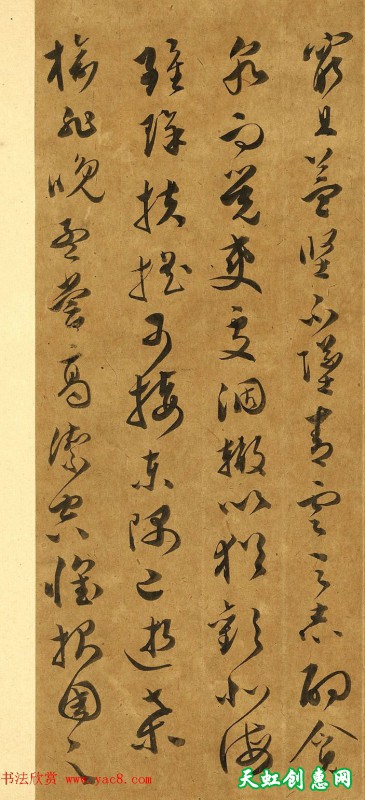 窮且益堅不墜青雲之志酌貪
泉而覺爽處涸轍以猶歡北海
雖賒扶搖可接東隅已逝桑
榆非晚孟嘗高潔空懷報國之
书法欣赏 www.yac8.com
天虹创惠网